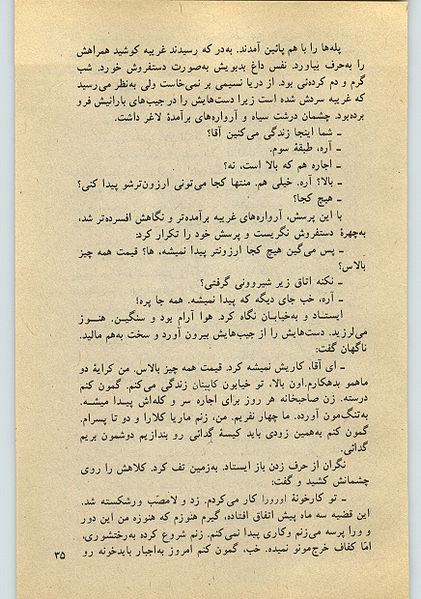 پله‌ها را با هم پائین آمدند. به‌در که رسیدند غریبه کوشید همراهش
را به‌حرف بیاورد. نفس داغ بدبویش به‌صورت دستفروش خورد. شب
گرم و دم کرده‌ئی بود. از دریا نسیمی بر نمی‌خاست ولی به‌نظر می‌رسید
که غریبه سردش شده است زیرا دست‌هایش را در جیب‌های بارانیش فرو
برده‌بود. چشمان درشت سیاه و آرواره‌های برآمدهٔ لاغر داشت.
ـ شما اینجا زندگی می‌کنین آقا؟
ـ آره، طبقهٔ سوم.
ـ اجاره هم که بالا است، نه؟
ـ بالا؟ آره. خیلی هم. منتها کجا می‌تونی ارزون‌ترشو پیدا کنی؟
ـ هیچ کجا؟
با این پرسش، آرواره‌های غریبه برآمده‌تر و نگاهش افسرده‌تر شد،
به‌چهرهٔ دستفروش نگریست و پرسش خود را تکرار کرد:
ـ پس می‌گین هیچ کجا ارزونتر پیدا نمیشه، ها؟ قیمت همه چیز
بالاس؟
ـ نکنه اتاق زیر شیروونی گرفتی؟
ـ آره، خب جای دیگه که پیدا نمیشه. همه جا پره!
ایستاد و به‌خیابان نگاه کرد. هوا آرام بود و سنگین. هنوز
می‌لرزید. دست‌هایش را از جیب‌هایش بیرون آورد و سخت به‌هم مالید.
ناگهان گفت:
ـ ای آقا، کاریش نمیشه کرد. قیمت همه چیز بالاس. من کرایهٔ دو
ماهمو بدهکارم. اون بالا، تو خیابون کاپیتان زندگی می‌کنم. گمون کنم
درسته. زن صاحبخانه هر روز برای اجاره سر و کله‌اش پیدا میشه.
به‌تنگ‌مون آورده. ما چهار نفریم. من، زنم ماریا کلارا و دو تا پسرام.
گمون کنم به‌همین زودی باید کیسهٔ گدائی رو بندازیم دوشمون بریم
گدائی.
نگران از حرف زدن باز ایستاد. به‌زمین تف کرد. کلاهش را روی
چشمانش کشید و گفت:
ـ تو کارخونهٔ اورورا کار می‌کردم. زد و لامصّب ورشکسته شد.
این قضیه سه ماه پیش اتفاق افتاده، گیرم هنوزم که هنوزه من این دور
و ورا پرسه می‌زنم وکاری پیدا نمی‌کنم. زنم شروع کرده به‌رختشوری،
امّا کفاف خرج‌مونو نمیده. خب، گمون کنم امروز به‌اجبار بایدخونه رو
۳۵